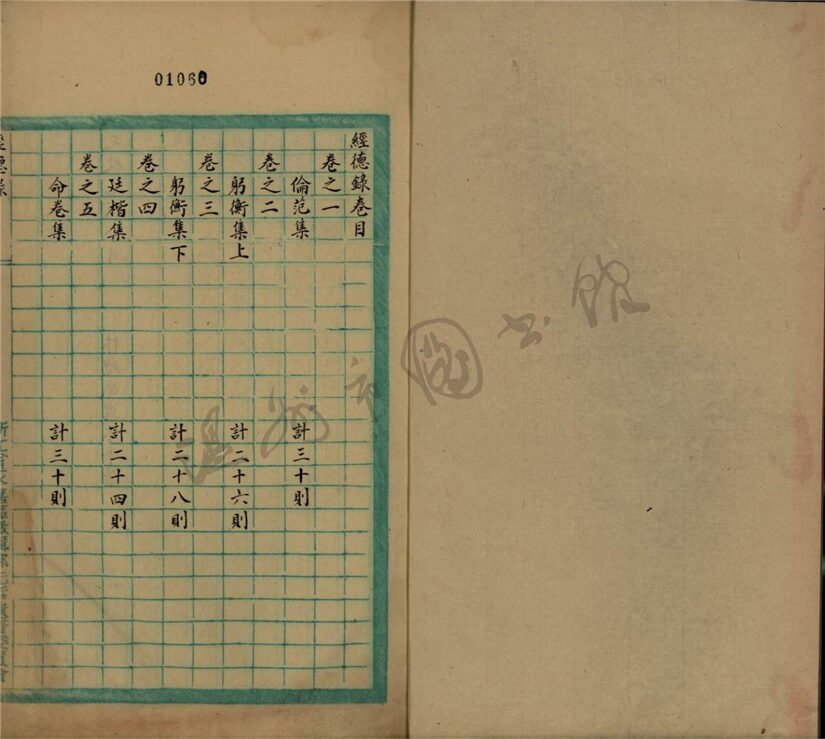 01060
經德錄卷目
卷之一
倫范集 計三十則
卷之二
躬衡集上 計二十六則
卷之三
躬衡集下 計二十八則
卷之四
廷楷集 計二十四則
卷之五
命卷集 計三十則
溫州市圖書館